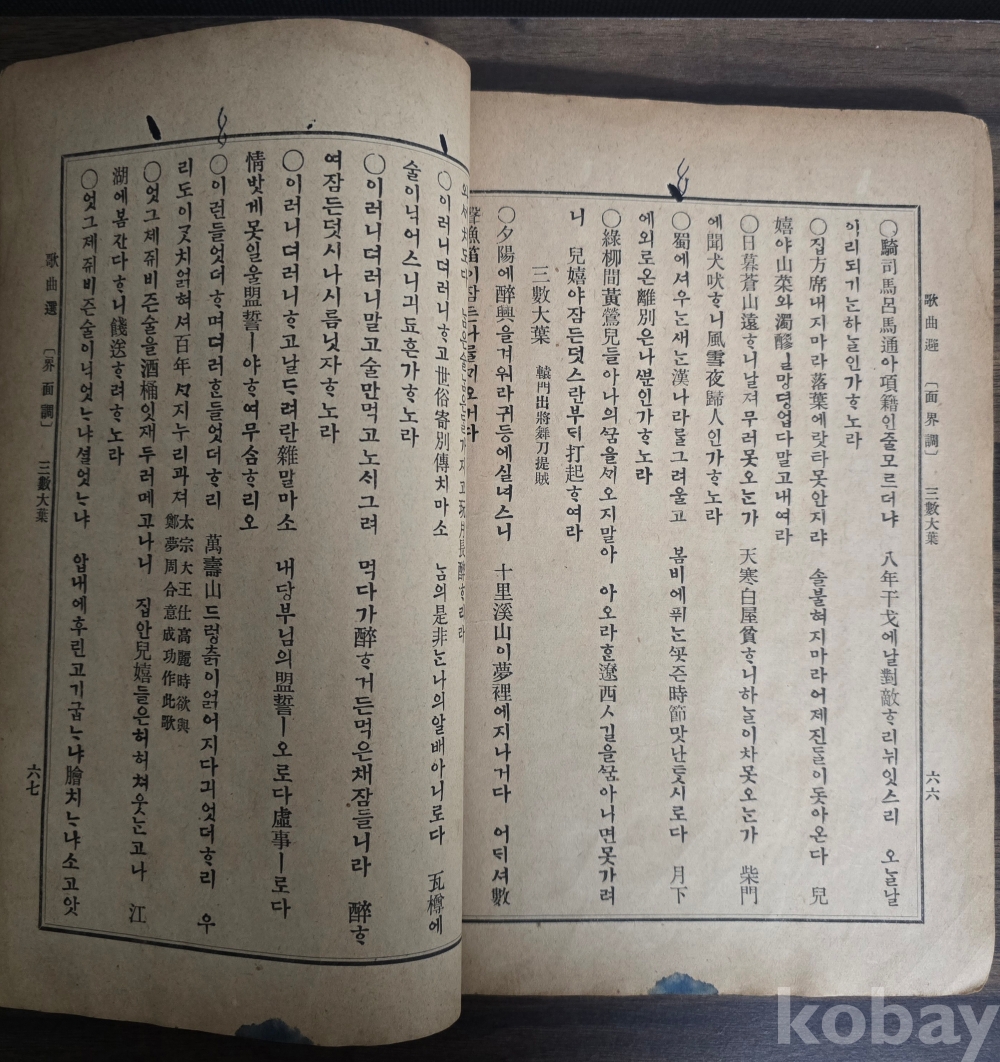 歌曲選 〔面界調〕 三數大葉 六六
○騎司馬呂馬通아項籍인줄모르더냐 八年干戈에날對敵ᄒᆞ리뉘잇스리 오ᄂᆞᆯ날
이리되기ᄂᆞᆫ하ᄂᆞᆯ인가ᄒᆞ노라
○집方席내지마라落葉에랏타못안지랴 솔불혀지마라어제진ᄃᆞᆯ이돗아온다 兒
嬉야山菜와濁醪ᅵᆯ망뎡업다말고내여라
○日暮蒼山遠ᄒᆞ니날져무러못오ᄂᆞᆫ가 天寒白屋貧ᄒᆞ니하ᄂᆞᆯ이차못오ᄂᆞᆫ가 柴門
에聞犬吠ᄒᆞ니風雪夜歸人인가ᄒᆞ노라
○蜀에셔우ᄂᆞᆫ새ᄂᆞᆫ漢나라ᄅᆞᆯ그려울고 봄비에퓌ᄂᆞᆫᄭᅩᆺ즌時節맛난듯시로다 月下
에외로온離別은나ᄲᅮᆫ인가ᄒᆞ노라
○綠柳間黃鶯兒들아나의ᄭᅮᆷ을ᄭᆡ오지말아 아오라ᄒᆞᆫ遼西ㅅ길을ᄭᅮᆷ아니면못가려
니 兒嬉야잠든덧스란부ᄃᆡ打起ᄒᆞ여라
三數大葉 轅門出將舞刀提賊
○夕陽에醉興을겨워라귀등에실녀스니 十里溪山이夢裡에지나거다 어ᄃᆡ셔數
聲漁笛이잠든나ᄅᆞᆯᄭᆡ오거다
○이러니뎌러니ᄒᆞ고世俗寄別傳치마소 ᄂᆞᆷ의是非ᄂᆞᆫ나의알배아니로다 瓦樽에
술이닉어스니긔됴흔가ᄒᆞ노라
○이러니뎌러니말고술만먹고노ᄉᆡ그려 먹다가醉ᄒᆞ거든먹은채잠들니라 醉ᄒᆞ
여잠든덧시나시름닛자ᄒᆞ노라
○이러니뎌러니ᄒᆞ고날ᄃᆞ려란雜말마소 내당부님의盟誓ㅣ오로다虛事ㅣ로다
情밧게못일울盟誓ㅣ야ᄒᆞ여무ᄉᆞᆷᄒᆞ리오
○이런들엇더ᄒᆞ며뎌러ᄒᆞᆫ들엇더ᄒᆞ리 萬壽山드렁츩이얽어지다긔엇더ᄒᆞ리 우
리도이ᄀᆞᆺ치얽혀셔百年ᄭᆞ지누리과져 太宗大王仕高麗時欲與
鄭夢周合意成功作此歌
○엇그제쥐비즌술을酒桶잇재두러메고나니 집안兒嬉들은허허쳐웃ᄂᆞᆫ고나 江
湖에봄잔다ᄒᆞ니餞送ᄒᆞ려ᄒᆞ노라
○엇그제쥐비즌술이닉엇ᄂᆞ냐셜엇ᄂᆞ냐 압내에후린고기굽ᄂᆞ냐膾치ᄂᆞ냐소고앗
歌曲選 〔界面調〕 三數大葉 六七
kobay